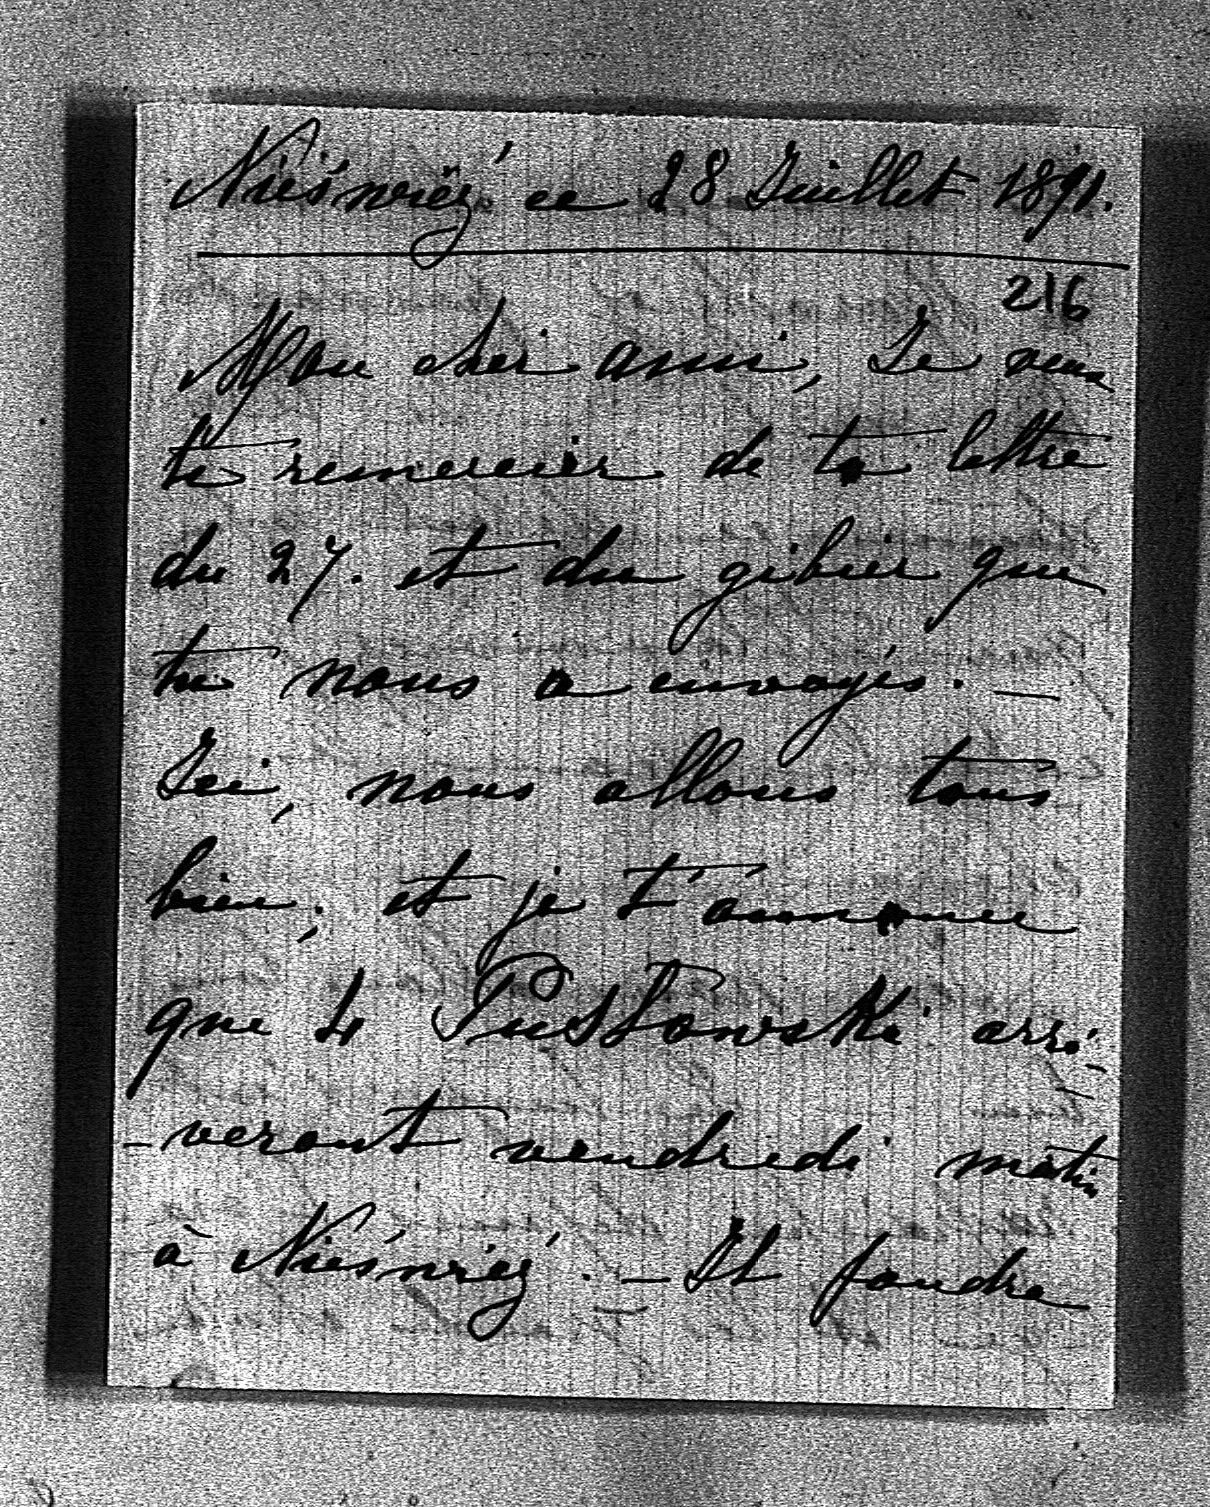 Nieśwież ce 28 Juillet 1891.
216
Mon cher ami, Je veux
te remercier de ta lettre
du 27. et du gibier que
tu nous a envoyés. —
Ici, nous allons tous
bien; et je t'annonce
que 4 Pustowski arri-
-veront vendredi matin
à Nieśwież. — Il faudra